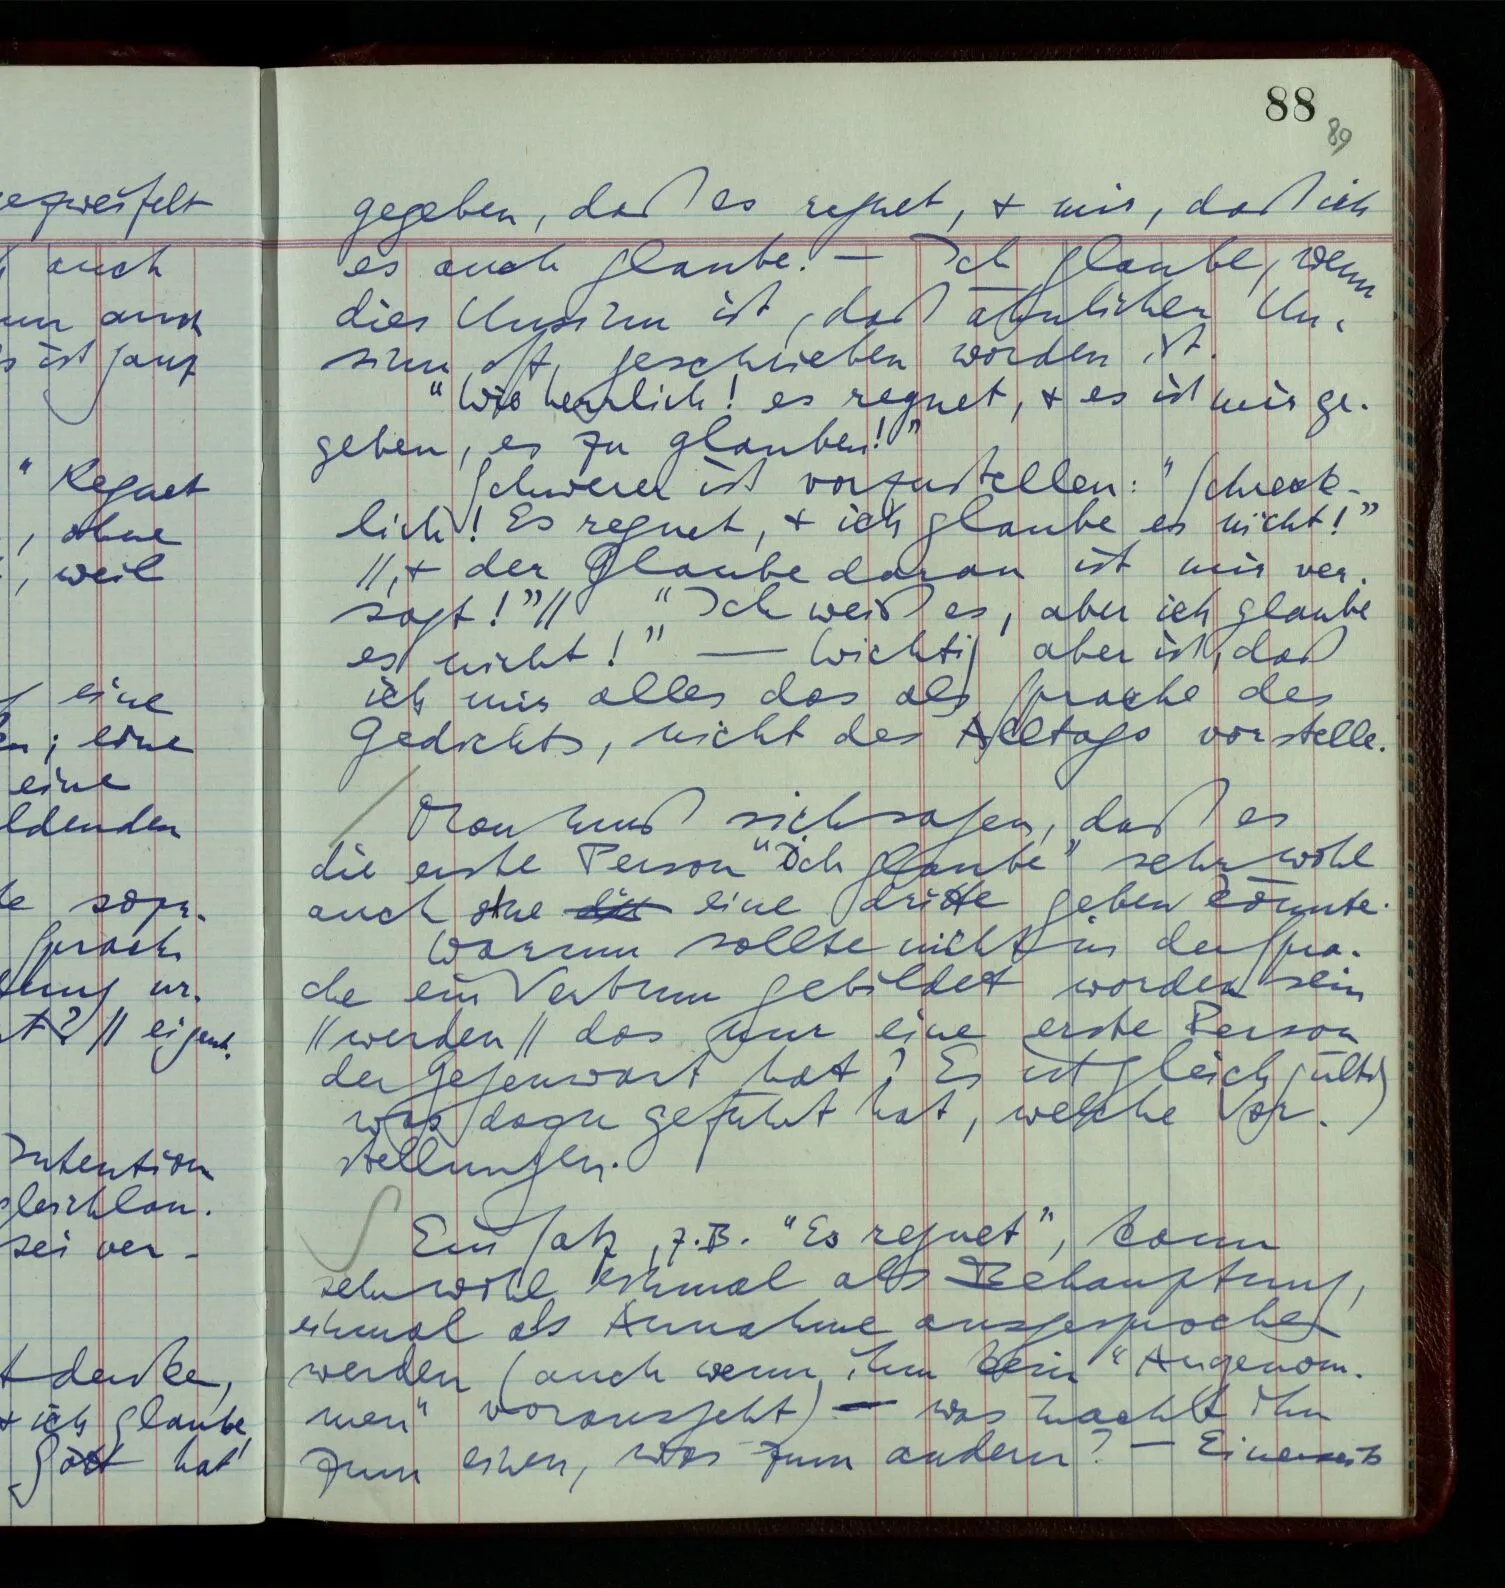 88
89
gezweifelt
auch
nun auch
ist ganz
" Regnet
, ohne
, weil
eine
; eine
eine
ldenden
Sprach
ur.
t? // eigent.
Intention
gleichlau.
sei ver-
t denke,
+ ich glaube,
Gott hat
gegeben, daß es regnet, + mir, daß ich
es auch glaube! — Ich glaube, wenn
dies Unsinn ist, daß ähnlicher Un-
sinn oft geschrieben worden ist.
"Wie herrlich! es regnet, + es ist mir ge-
geben, es zu glauben!"
Schwerer ist vorzustellen: "Schreck-
lich! Es regnet, + ich glaube es nicht!"
//, + der Glaube daran ist mir ver-
sagt!"// "Ich weiß es, aber ich glaube
es nicht!" — Wichtig aber ist, daß
ich mir alles das als Sprache des
Gedichts, nicht des Alltags vorstelle.
Man muß sich sagen, daß es
die erste Person "Ich glaube" sehr wohl
auch ohne eine dritte geben könnte.
Warum sollte nicht in der Spra-
che ein Verbum gebildet worden sein
// werden // das nur eine erste Person
der Gegenwart hat? Es ist gleichgültig
was dazu geführt hat, welche Vor-
stellungen.
Ein Satz, z.B. "Es regnet", kann
sehr wohl einmal als Behauptung,
einmal als Annahme ausgesprochen
werden (auch wenn ihm kein "Angenom-
men" vorausgeht) — was macht ihn
zum einen, was zum andern? — Einerseits